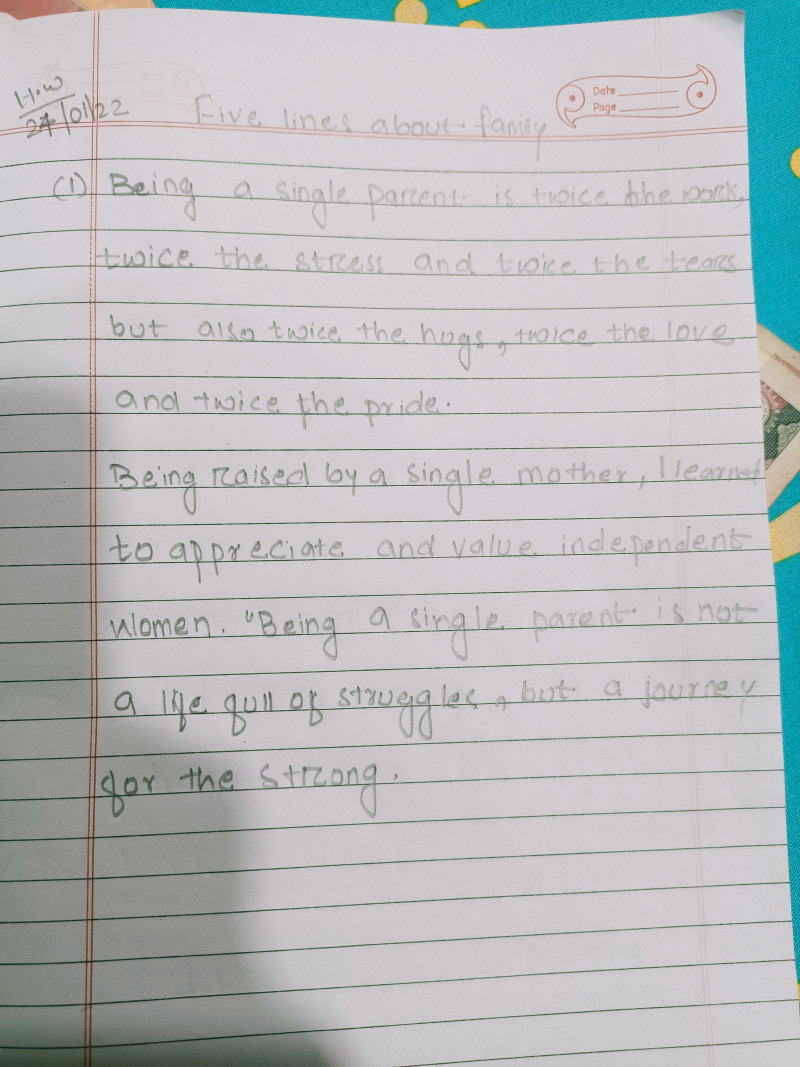 H.W
24/01/22
Five lines about family
Date
Page
(1) Being a single parent is twice the work,
twice the stress and twice the tears
but also twice the hugs, twice the love
and twice the pride.
Being raised by a single mother, I learned
to appreciate and value independent
women. "Being a single parent is not
a life full of struggles, but a journey
for the strong.